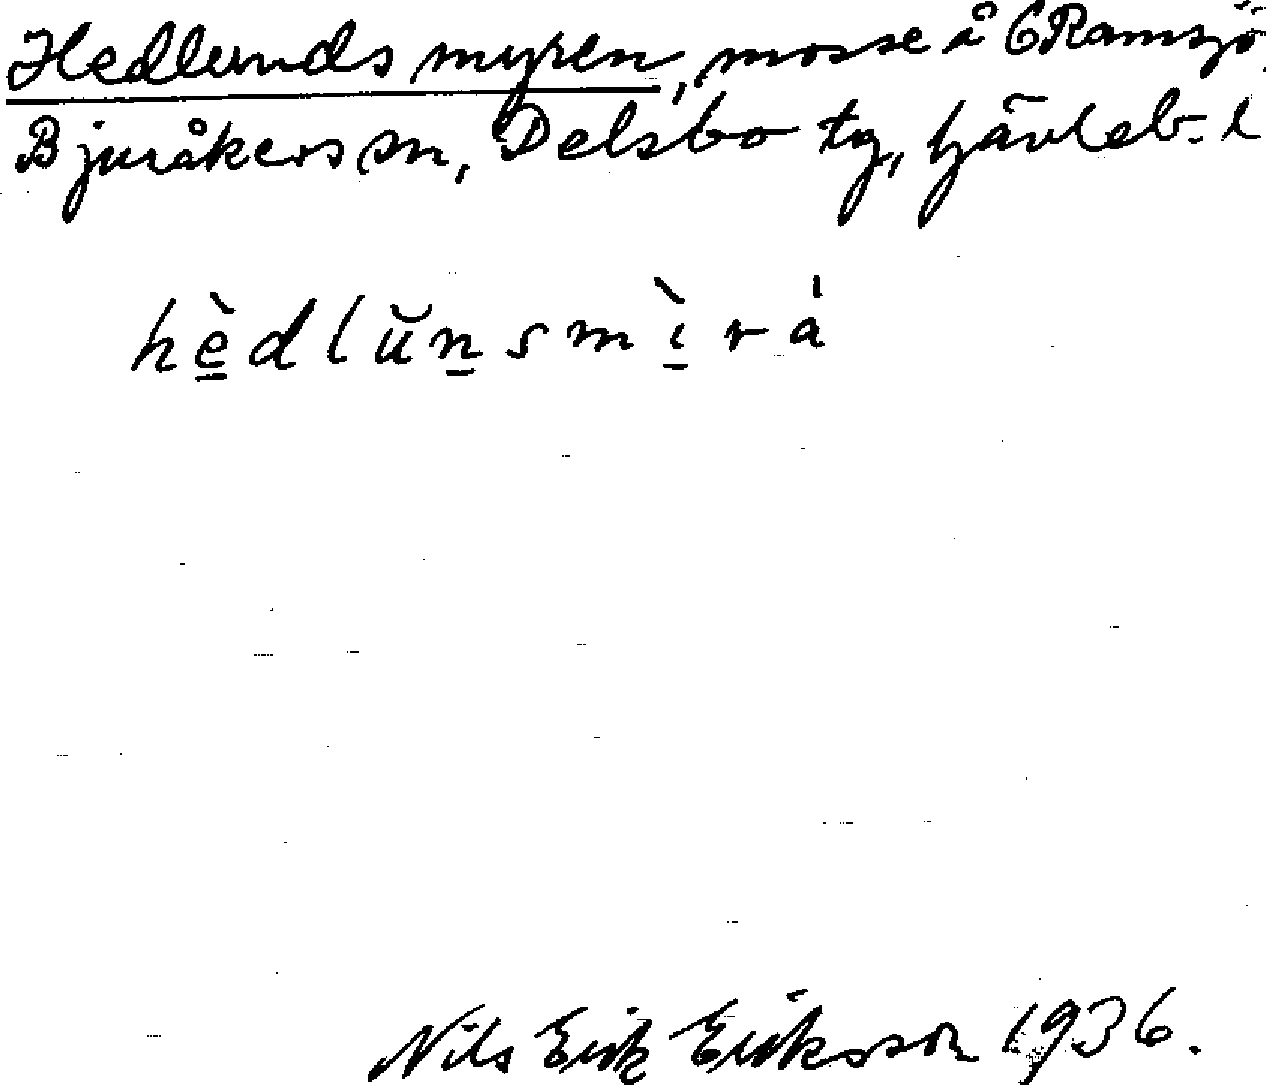 Hedlunds myren, mosse å 6 Ramsjö,
Bjuråkers sn, Delsbo tg, Gävleb. l
hè̱dlŭṉsmì̱rȧ
Nils Erik Eriksson 1936.